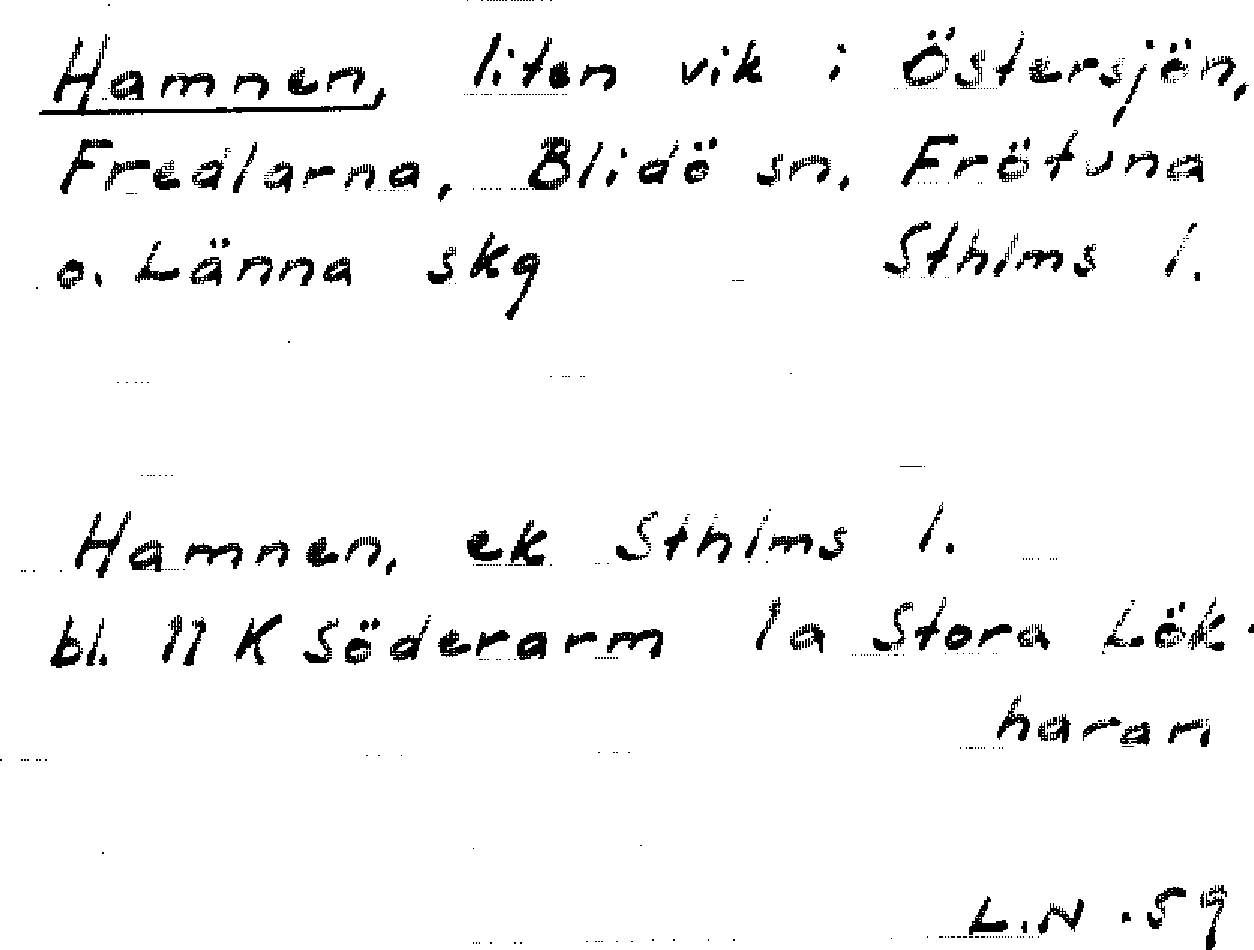 Hamnen, liten vik i Östersjön,
Fredlarna, Blidö sn, Frötuna
o. Länna skg Sthlms l.
Hamnen, ek Sthlms l.
bl. 11 K Söderarm 1a Stora Lök-
haran
L.N. 59